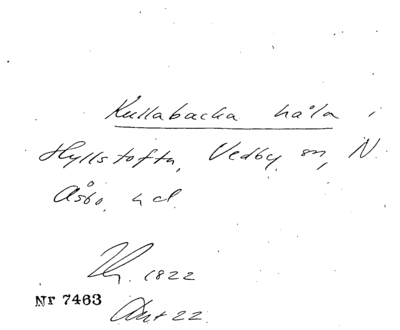 Kullabacka håla i
Hyllstofta, Vedby sn, N.
Åsbo hd.
1822
Nr 7463
22.